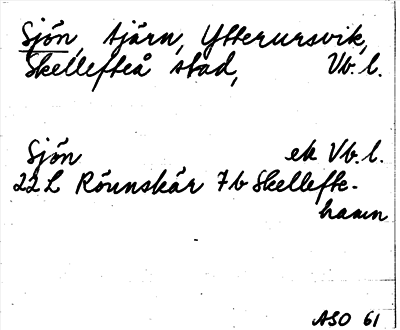 Sjön, tjärn, Ytterursvik,
Skellefteå stad, Vb. l.
Sjön ek Vb. l.
22 L Rönnskär 7 b Skellefte-
hamn
ASO 61